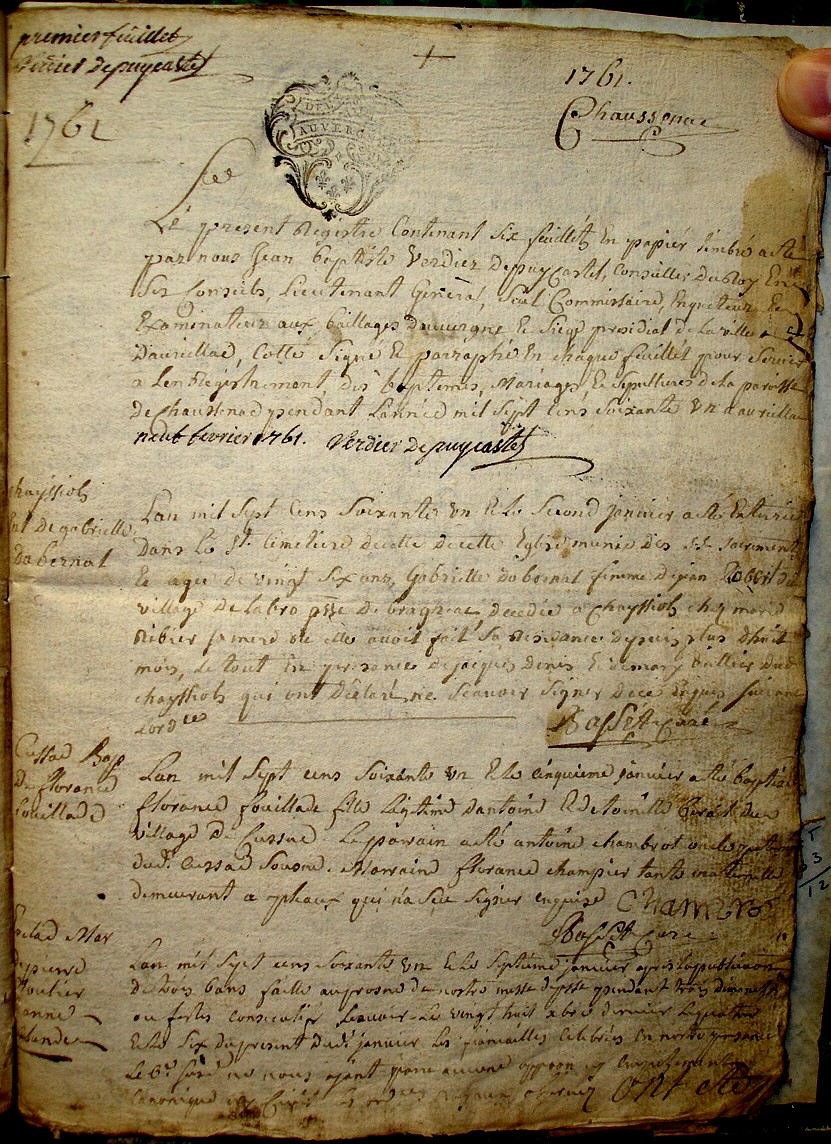 premier feuillet
Verdier Depuycastel
1761
1761.
Chaussenac
DE LA
AUVERGNE
Le present Registre Contenant six feuillets En papier timbré a eté
par nous Jean baptiste Verdier Depuycastel, Conseiller Du Roy En
Ses Conseils, Lieutenant General, Seul Commissaire, Enqueteur Et
Examinateur aux bailliages Dauvergne Et Siege presidial de la ville
Daurillac, Cotté Signé Et parraphé En chaque feuillet pour Servir
a Lenregistrement des baptemes, Mariages, Et Sepultures de la paroisse
De chaussenac pendant Lannée mil Sept Cens Soixante Un a aurillac
neuf fevrier 1761. Verdier Depuycastel
chayssiol
Ent De gabrielle
Dabernat
Lan mil Sept Cens Soixante Un Et le Second janvier a eté Enterrée
Dans le St. Cimetiere de cette Eglise munie Des St. Sacrements
Et agée de vingt Six ans, Gabrielle Dabernat femme De jean
village De Labro psse De brageac, decedée a Chayssiol chez marie
Ribier sa mere ou elle avoit fait Sa Residance depuis plus Dhuit
mois, Le tout En presence De jacques Denis Et De
chayssiol qui ont Declaré ne Scavoir Signer De ce Enquis Suivant
Lord.ce
Basset Curé
Cussac Bap
De florance
fouillade
Lan mil Sept cens Soixante Un Et le cinquieme janvier a eté baptisée
florance fouillade fille Legitime Dantoine Et De toinette
village De Cussac. Le parrain a eté antoine chambrot oncle
dud. Cussac Sousné. Marraine florance champier tante maternelle
demeurant a opleaux qui na Sceu Signer enquise Chambro
Basset Curé
Mar
De pierre
anne
Lan mil Sept cens Soixante Un Et le Septieme janvier apres la publication
De trois bans faite au prosne De nostre messe De psse pendant trois Dimanches
ou festes Consecutifs Scavoir le vingt huit Xbre dernier
Et le Six Du present Dud. janvier Les fiancailles Celebrées En
Le 6e ne nous ayant aucune oppon ny Empechement
Canonique ny Civil ont eté